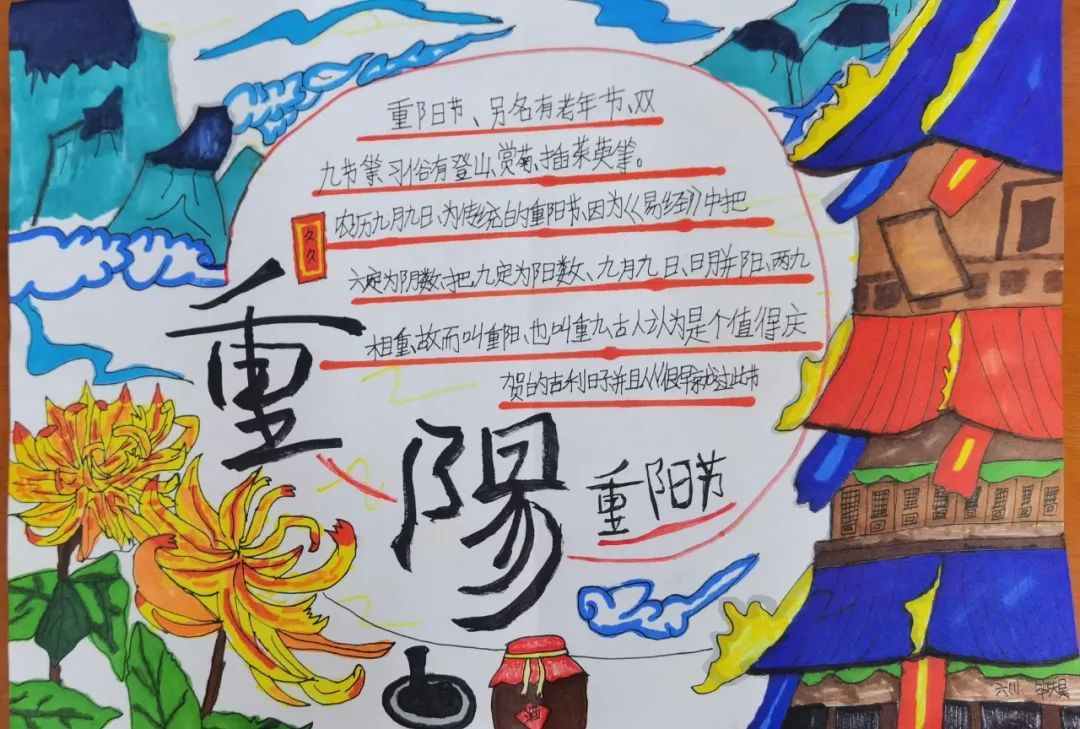 重阳节、另名有老年节、双
九节等习俗有登山、赏菊、插茱萸等。
农历九月九日、为传统的重阳节、因为《易经》中把
六定为阴数、把九定为阳数、九月九日、日月并阳、两九
相重、故而叫重阳、也叫重九、古人认为是个值得庆
贺的吉利日子并且从很早就过此节
久久
重陽
重阳节
酒